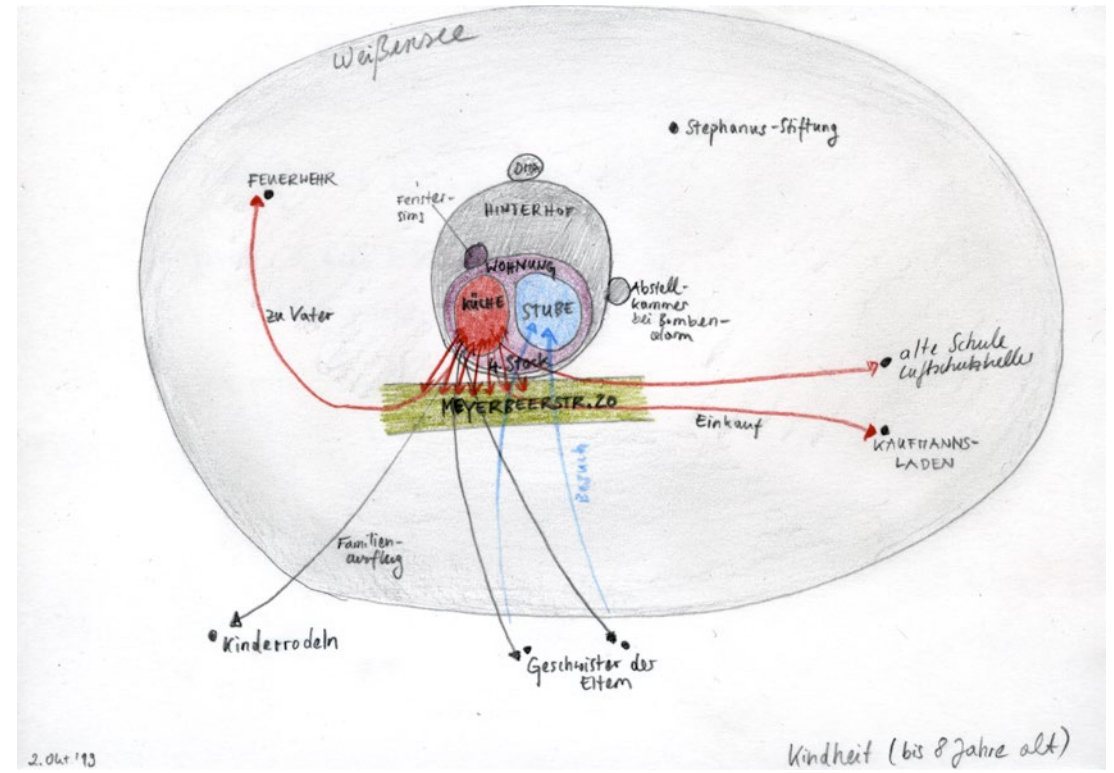 Weißensee
Stephanus-Stiftung
FEUERWEHR
OMA
Fenster-
sims
HINTERHOF
WOHNUNG
KÜCHE
STUBE
Abstell-
kammer
bei Bomben-
alarm
zu Vater
4. Stock
alte Schule
Luftschutzkeller
MEYERBEERSTR. 20
Einkauf
KAUFMANNS-
LADEN
Besuch
Familien-
ausflug
Kinderrodeln
Geschwister der
Eltern
2. Okt. '93
Kindheit (bis 8 Jahre alt)